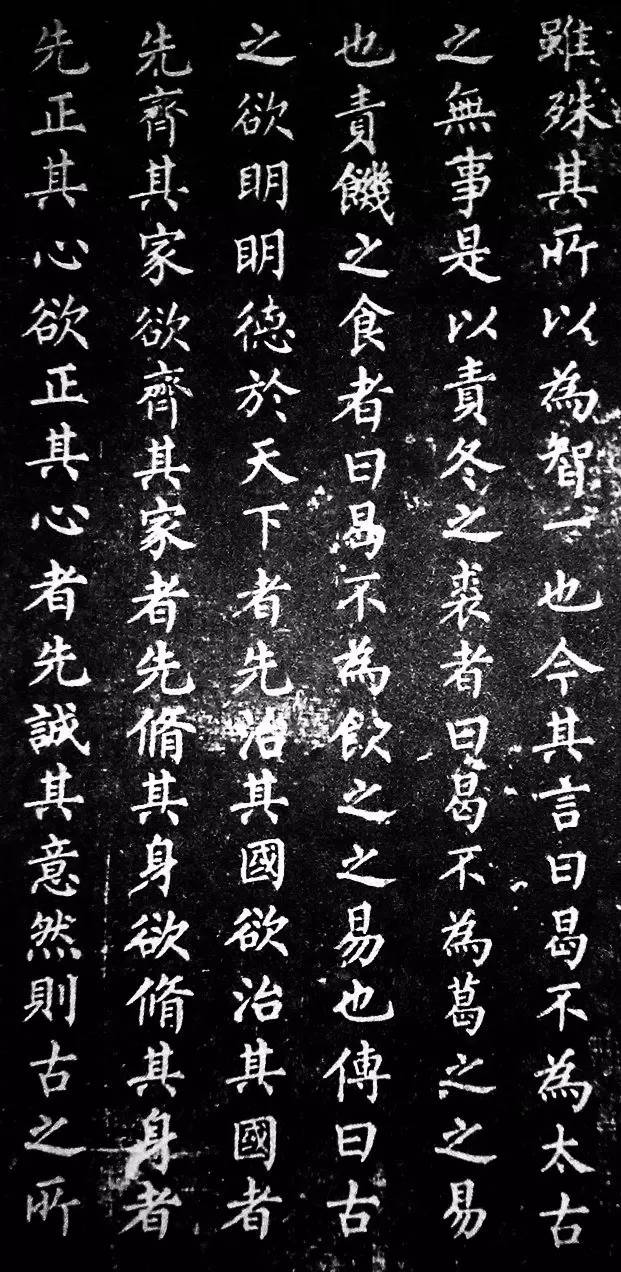 雖殊其所以為智一也今其言曰曷不為太古
之無事是以責冬之裘者曰曷不為葛之之易
也責饑之食者曰曷不為飲之之易也傳曰古
之欲明明德於天下者先治其國欲治其國者
先齊其家欲齊其家者先脩其身欲脩其身者
先正其心欲正其心者先誠其意然則古之所